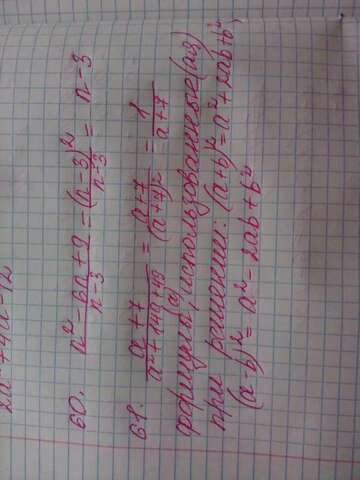 2a²+4a-12
60. \frac{n²-6n+9}{n-3} = \frac{(n-3)²}{n-3} = n-3
61. \frac{a+7}{a²+14a+49} = \frac{a+7}{(a+7)²} = \frac{1}{a+7}
формулы, использованные (ая)
при решении: (a+b)²=a²+2ab+b²,
(a-b)²=a²-2ab+b²